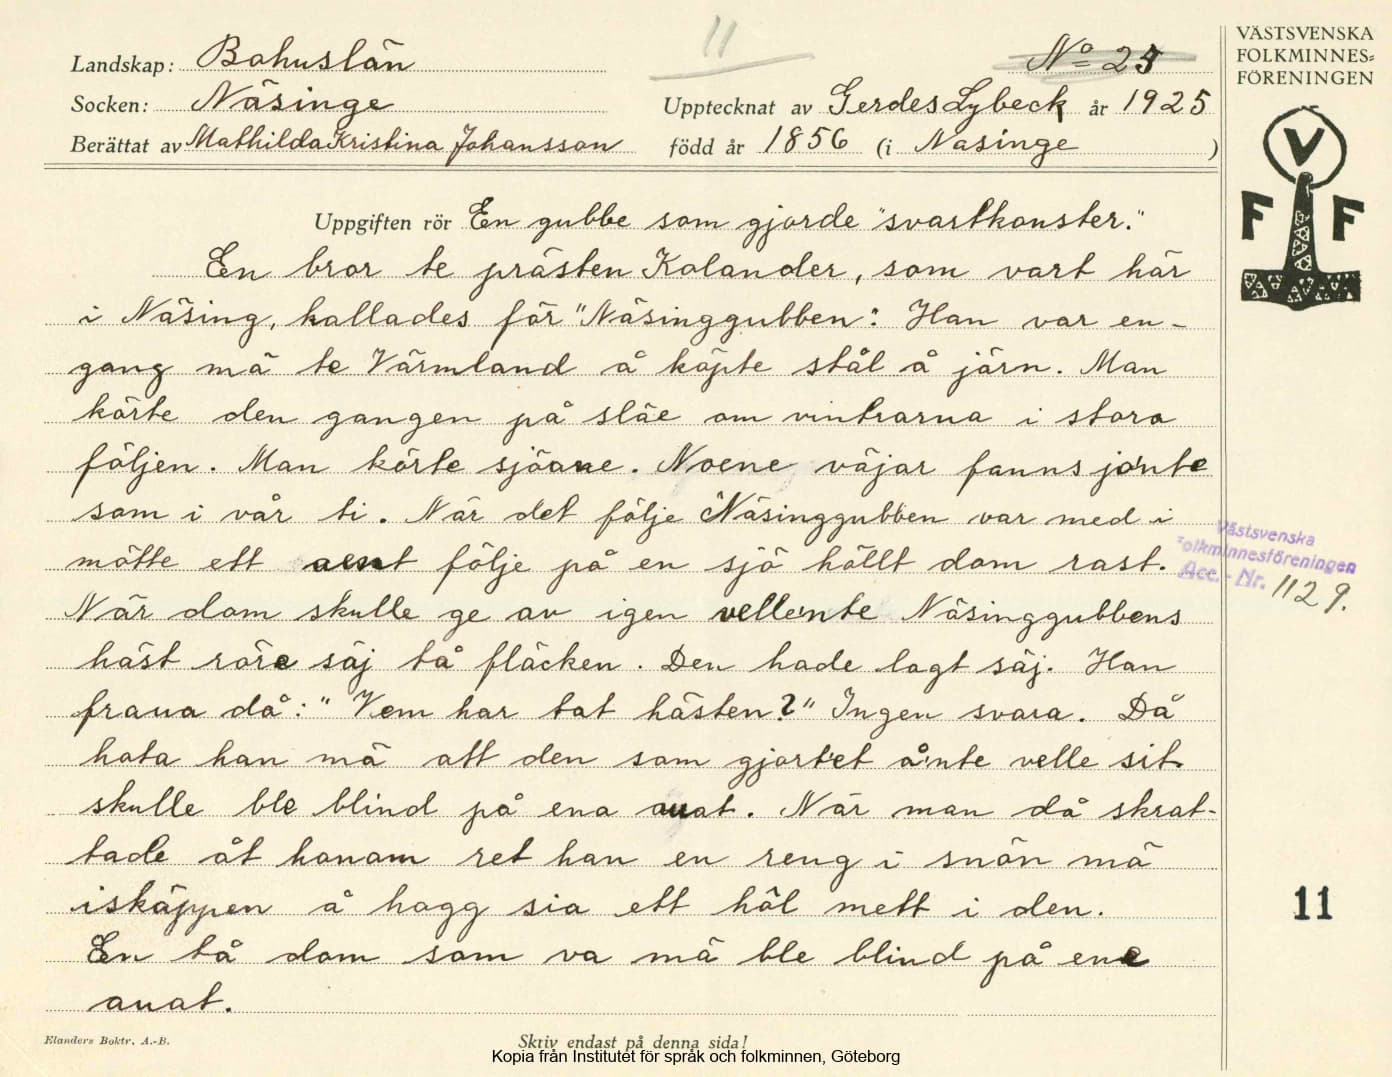 11
Landskap: Bohuslän
No 25
Socken: Näsinge
Upptecknat av Gerdes Lybeck år 1925
Berättat av Mathilda Kristina Johansson
född år 1856 (i Näsinge)
VÄSTSVENSKA
FOLKMINNES=
FÖRENINGEN
V
F F
Uppgiften rör En gubbe som gjorde "svartkonster."
En bror te prästen Kolander, som vart här
i Näsing, kallades för "Näsinggubben". Han var en-
gang mä te Värmland å köpte stål å järn. Man
körte den gangen på släe om vintrarna i stora
följen. Man körte sjöane. Noene väjar fanns jo'nte
som i vår ti. När det följe Näsinggubben var med i
mötte ett aent följe på en sjö höllt dom rast.
När dom skulle ge av igen velle'nte Näsinggubbens
häst röre säj tå fläcken. Den hade lagt säj. Han
fraua då: "Vem har tat hästen?" Ingen svara. Då
hota han mä att den som gjort'et å'nte velle sit
skulle ble blind på ena auat. När man då skrat-
tade åt honom ret han en reng i snön mä
iskäppen å hogg sia ett hål mett i den.
En tå dom som va mä ble blind på ene
auat.
Västsvenska
Folkminnesföreningen
Acc. - Nr. 1129.
11
Elanders Boktr. A.-B.
Skriv endast på denna sida!
Kopia från Institutet för språk och folkminnen, Göteborg